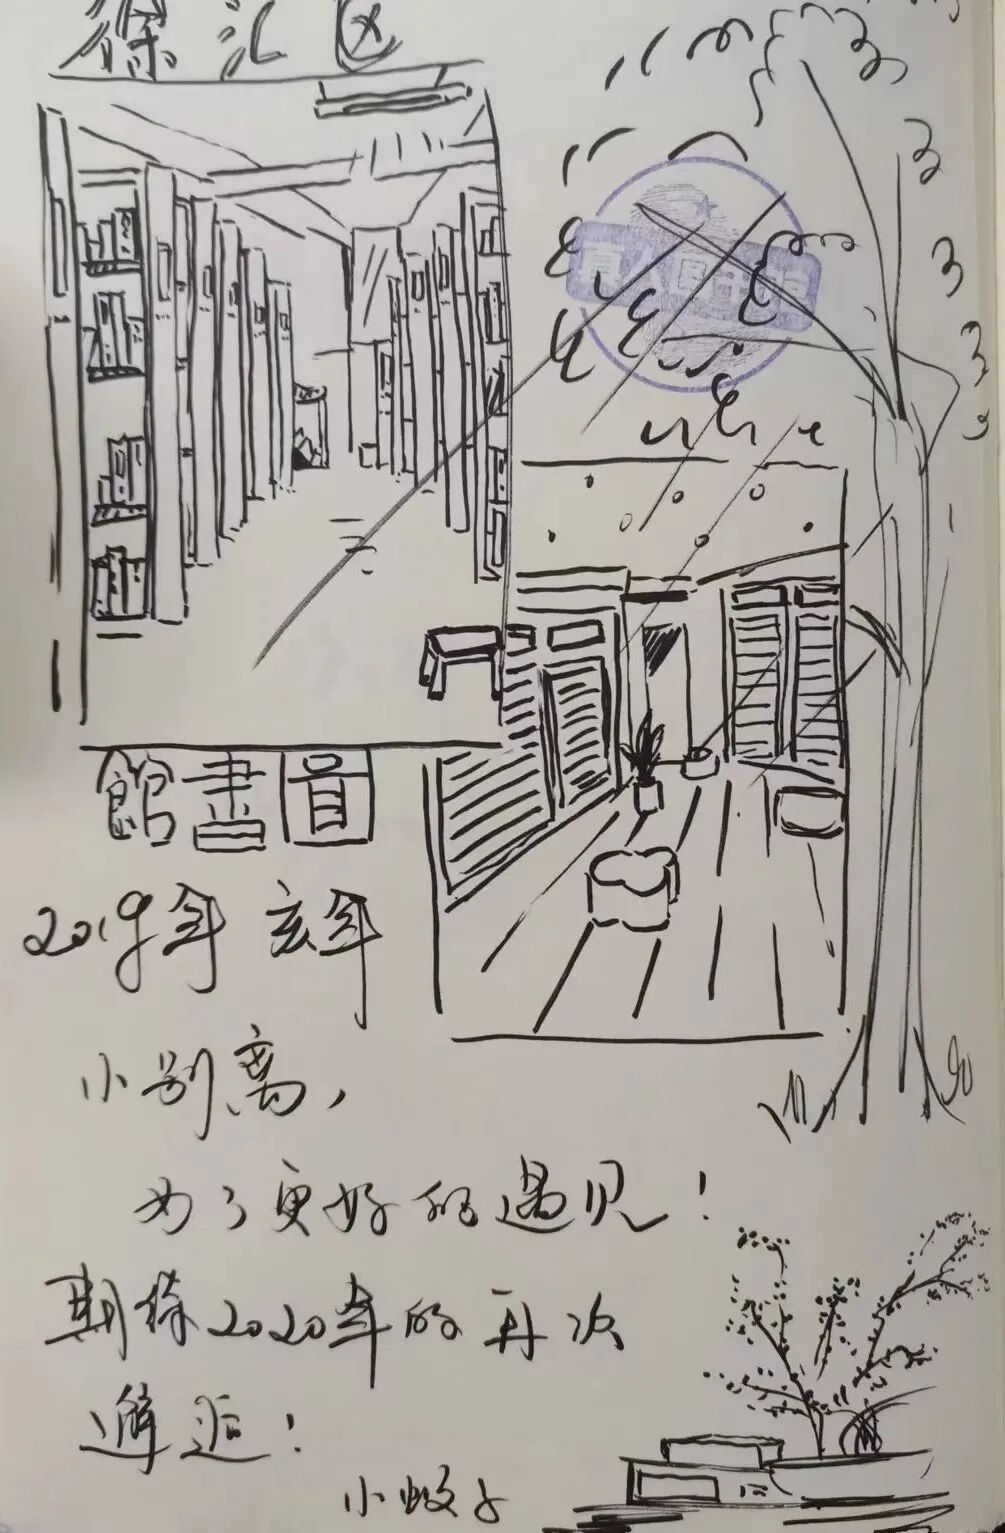 徐汇区
館書圖
2019年 亥年
小别离，
为了更好的遇见！
期待2020年的再次
邂逅！
小蚊子